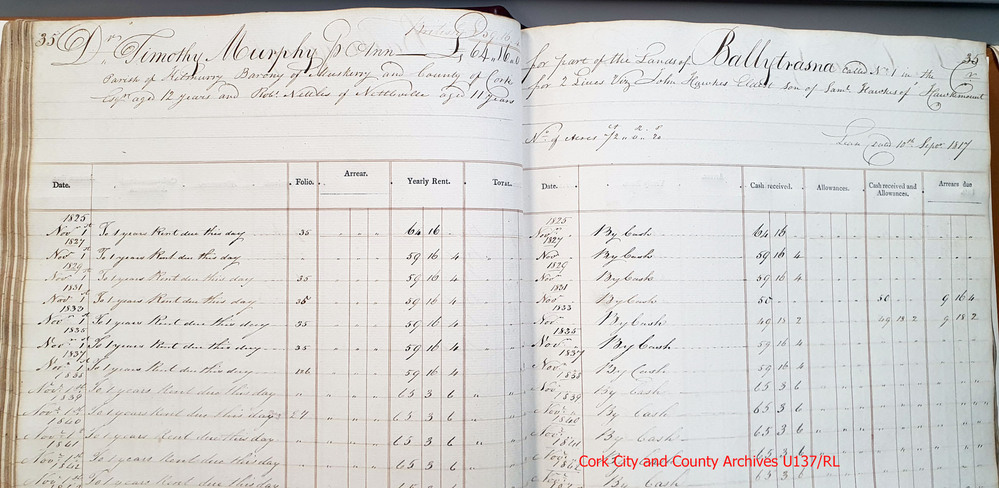 35 Dr Timothy Murphy Pr Ann £64"16"0
Parish of Kilmurry Barony of Muskerry and County of Cork
Esqr aged 12 years and Robt Nettles of Nettleville aged 11 years
for part of the Lands of Ballytrasna called No 1 in the 35
for 2 Lives Viz John Hawkes Eldest son of Saml Hawkes of Hawkemount
No of Acres 72 " 0 " 20 Lease dated 10th Sepr 1817
Date. Folio. Arrear. Yearly Rent. Total.
1825
Novr 1st To 1 years Rent due this day 35 64 16
1827
Novr 1st To 1 years Rent due this day 59 16 4
1829
Novr 1st To 1 years Rent due this day 35 59 16 4
1831
Novr 1st To 1 years Rent due this day 35 59 16 4
1833
Novr 1st To 1 years Rent due this day 35 59 16 4
1835
Novr 1st To 1 years Rent due this day 35 59 16 4
1837
Novr 1st To 1 years Rent due this day 126 59 16 4
1838
Novr 1st To 1 years Rent due this day 65 3 6
1839
Novr 1st To 1 years Rent due this day 27 65 3 6
1840
Novr 1st To 1 years Rent due this day 65 3 6
1841
Novr 1st To 1 years Rent due this day 65 3 6
1842
Novr 1st To 1 years Rent due this day
Date. Cash received. Allowances. Cash received and Allowances. Arrears due
1825
Novr 1 By Cash 64 16
1827
Novr By Cash 59 16 4
1829
Novr By Cash 59 16 4
1831
Novr By Cash 50 50 9 16 4
1833
Novr By Cash 49 18 2 49 18 2 9 18 2
1835
Novr By Cash 59 16 4
1837
Novr By Cash 59 16 4
1838
Novr By Cash 65 3 6
1839
Novr By Cash 65 3 6
1840
Novr By Cash 65 3 6
1841
Novr By Cash
Cork City and County Archives U137/RL